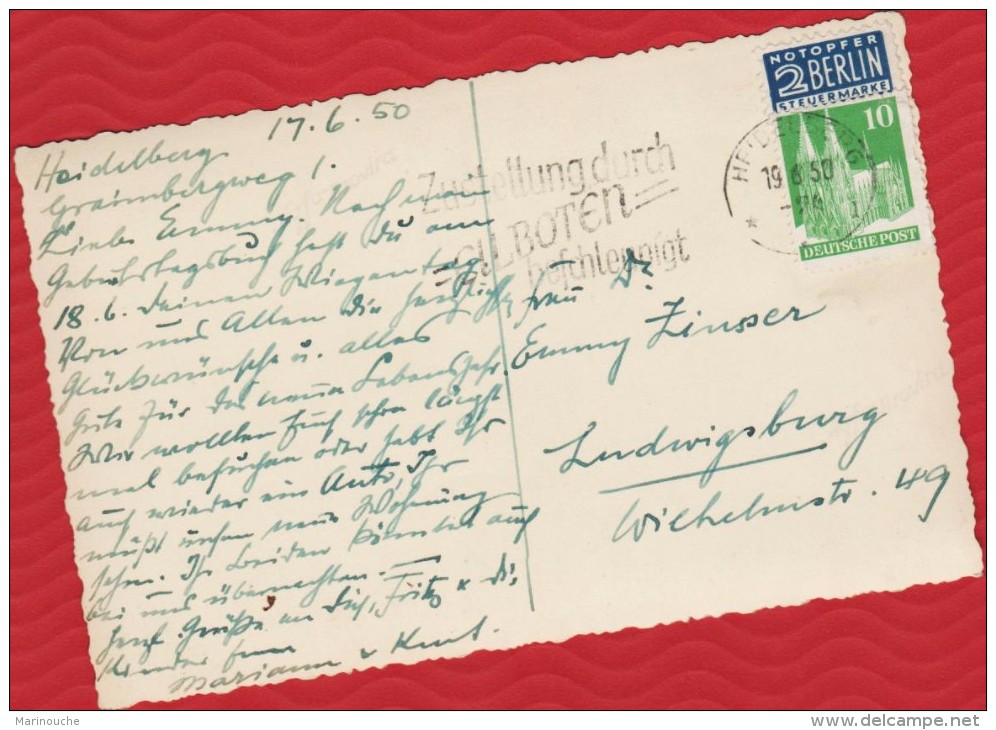 17.6.50
Heidelberg
Graimbergweg 1.
Liebe Emmy. Nach unserm
Geburtstagsbuch hast Du am
18.6. deinen Wiegentag
Von uns Allen die herzlichst
Glückwünsche u. alles
Gute für das neue Lebensjahr.
Wir wollten Euch schon längst
mal besuchen oder habt Ihr
auch wieder ein Auto, Ihr
müßt unsere neue Wohnung
sehen. Ihr beiden könntet auch
bei uns übernachten. —
Herzl. Grüße an Dich, Fritz + die
Kinder von
Mariann u Kurt.
Zustellung durch
EILBOTEN
beschleunigt
NOTOPFER
2 BERLIN
STEUERMARKE
10
DEUTSCHE POST
HEIDELBERG
19.6.50
Frau Dr
Emmy Zinsser
Ludwigsburg
Wilhelmstr. 49
Marinouche
delcampe.net